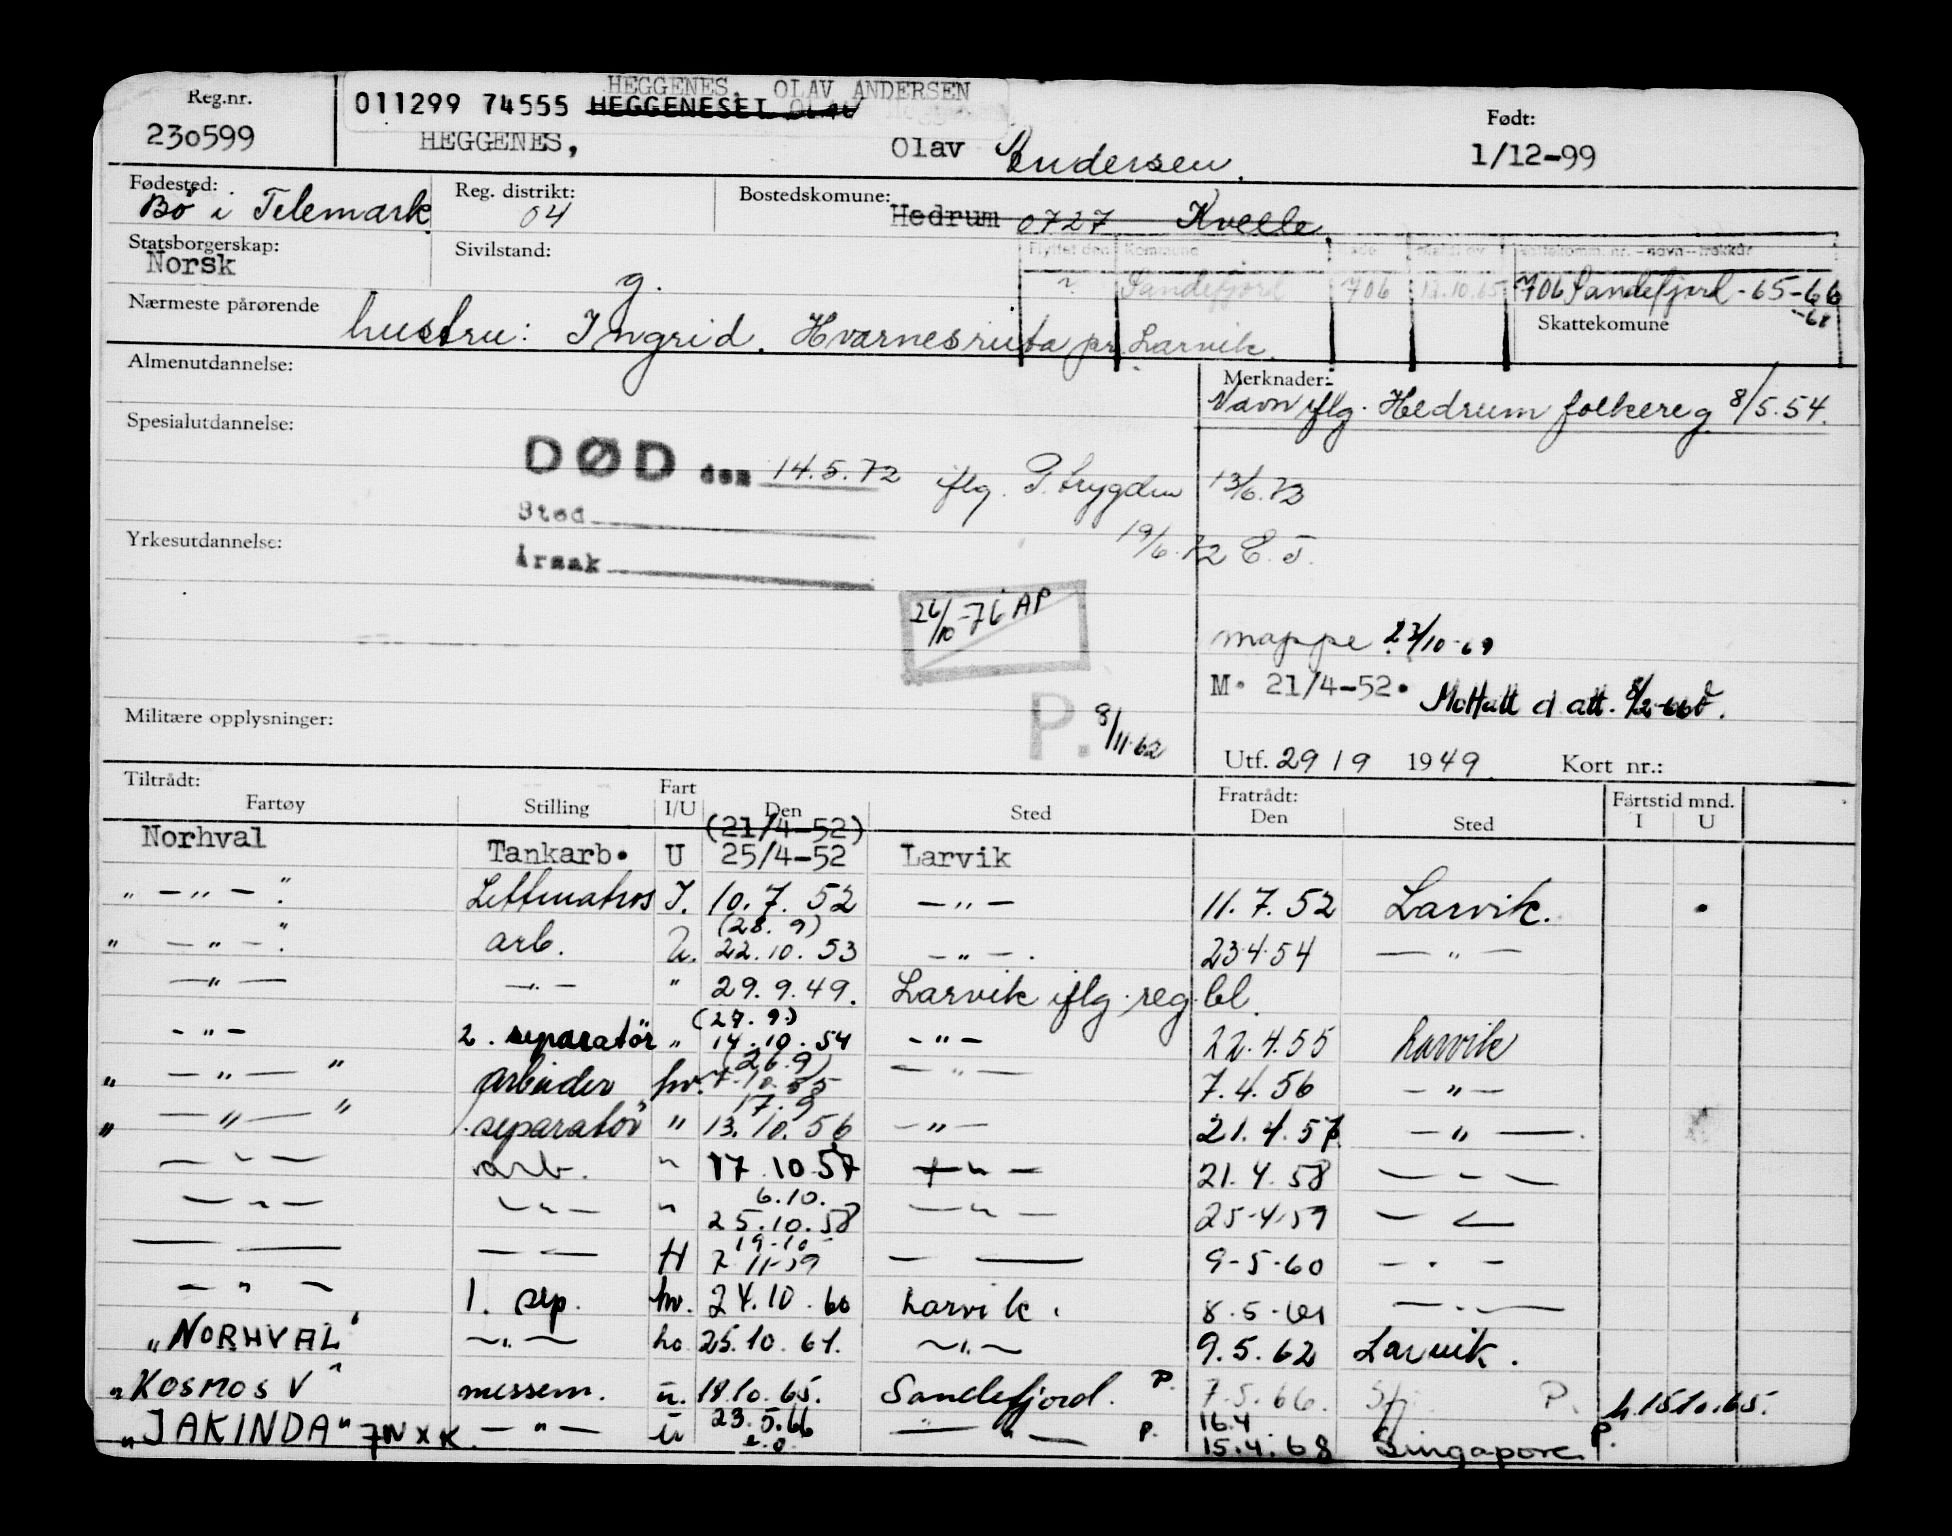 HEGGENES, OLAV ANDERSEN
Reg.nr. 011299 74555 HEGGENESET OLAV Født:
230599 HEGGENES, Olav Andersen. 1/12-99
Fødested: Reg. distrikt: Bostedskomune:
Bø i Telemark 04 Hedrum 0727 Kvelle
Statsborgerskap: Sivilstand: Flyttet den Kommune
Norsk g. Sandefjord 706 12.10.65 706 Sandefjord - 65-66
-68
Nærmeste pårørende Skattekomune
hustru: Ingrid. Hvarnesruta pr. Larvik.
Almenutdannelse: Merknader:
Navn iflg. Hedrum folkereg 8/5.54.
Spesialutdannelse:
DØD den 14.5.72 iflg. P. trygden 13/6.73
Sted
19/6.72 E.T.
Yrkesutdannelse:
Årsak
26/10-76 AP
mappe 23/10-69
M. 21/4-52. Mottatt d att. 8/2-66
Militære opplysninger: P. 8/11.62
Utf. 29/9 1949 Kort nr.:
Tiltrådt: Fratrådt: Fartstid mnd.
Fartøy Stilling Fart I/U Den Sted Den Sted I U
(21/4-52)
Norhval Tankarb. U 25/4-52 Larvik
" — " — " Lettmatros I. 10.7.52 — " — 11.7.52 Larvik.
(28.9)
" — " — " arb. U. 22.10.53 — " — . 23.4.54 — " —
— " — — " — " 29.9.49. Larvik iflg. reg.bl.
(27.9.)
- " - 2. separatør " 14.10.54 - " - 22.4.55 Larvik
(26.9)
" — " — " arbeider hv. 7.10.55 — " — 7.4.56 — " —
17.9
" — " — " separatør " 13.10.56 — " — 21.4.57 — " —
— " — arb. " 17.10.57 — " — 21.4.58 — " —
6.10.
— " — — " — " 25.10.58 — " — 25-4-59 — " —
19-10
— — — — H 7-11-59 — — 9-5-60 - . -
— " — 1. sep. hv. 24.10.60 Larvik. 8.5-61 — . —
"NORHVAL" — " — hv 25.10.61. — " — 9.5.62 Larvik.
"KOSMOS V" messem. u. 18.10.65. Sandefjord. P. 7.5.66. Sfj. P. h.15.10.65.
23.5.66 16.4
"JAKINDA" JWXK. — " — u — " — P. 15.4.68 Singapore P.